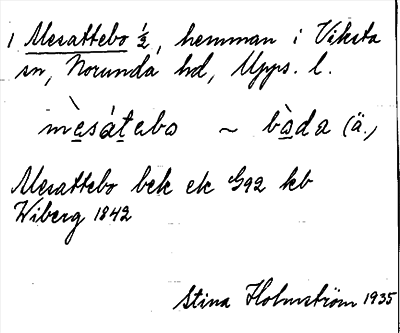 1 Mesattebo ½, hemman i Viksta
sn, Norunda hd, Upps. l.
mèsátebo ~ bòda (ä.)
Mesattebo bek ek G92 kb
Wiberg 1842
Stina Holmström 1935